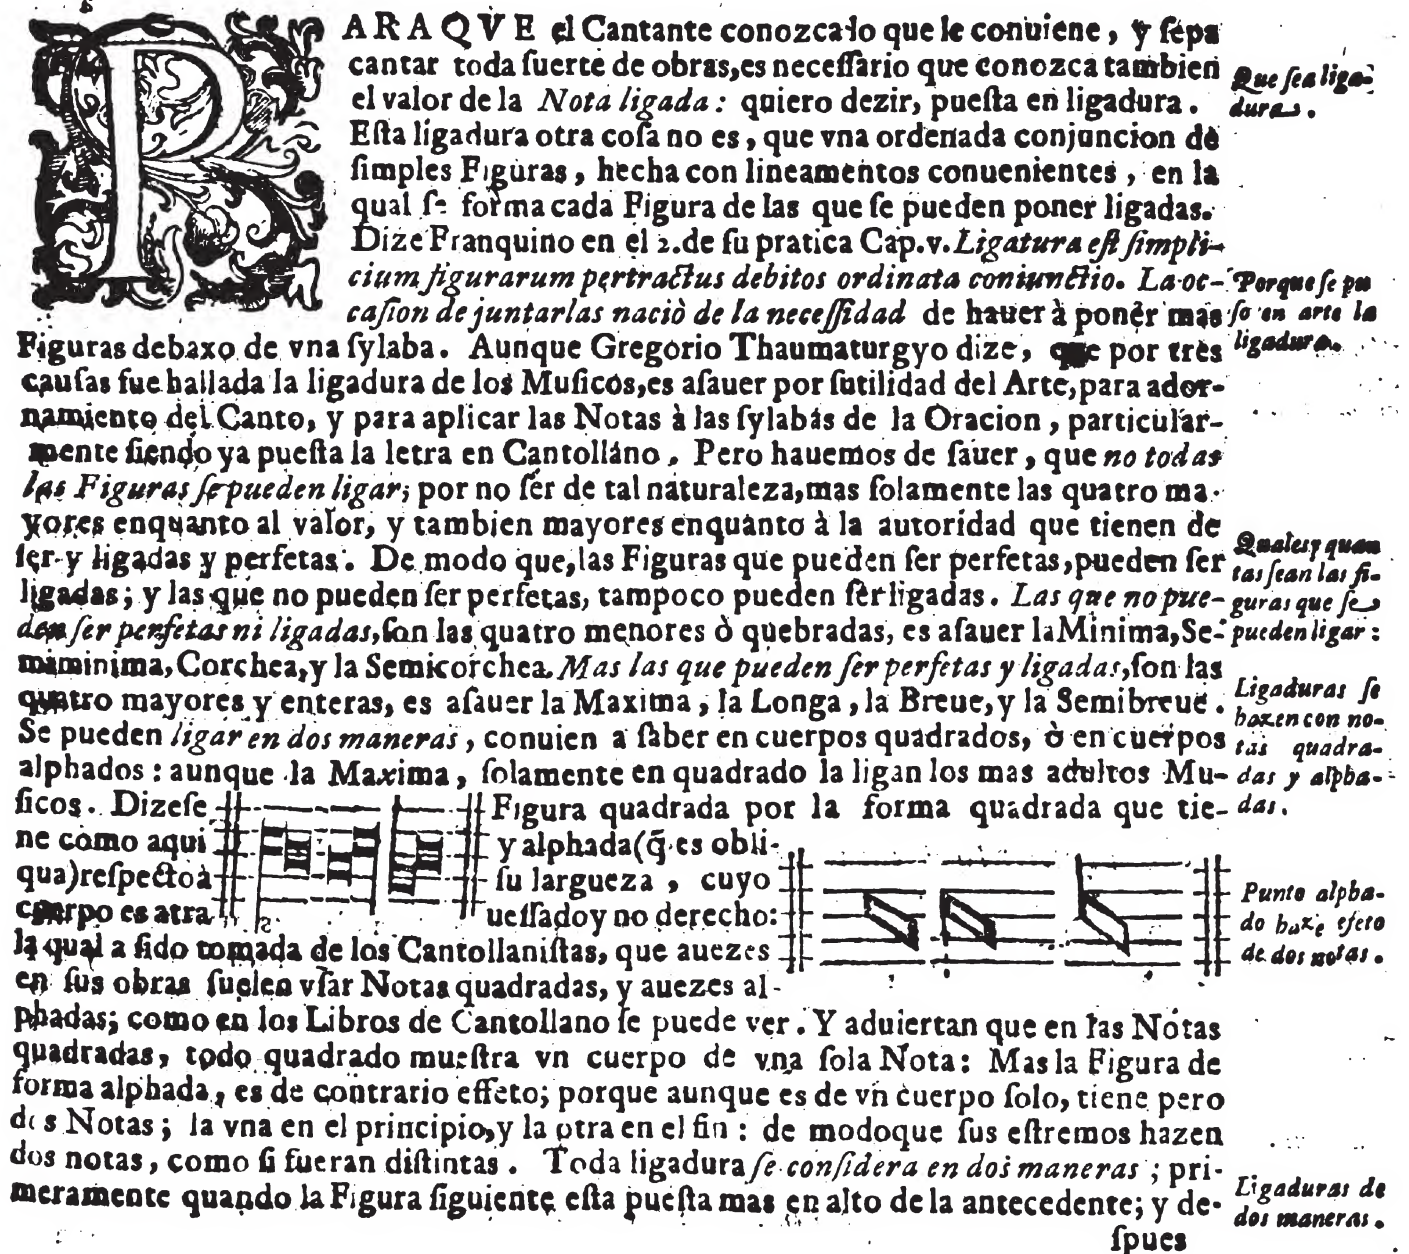 PARAQVE el Cantante conozca lo que le conuiene, y ſepa
cantar toda ſuerte de obras, es neceſſario que conozca tambien
el valor de la Nota ligada: quiero dezir, pueſta en ligadura.
Eſta ligadura otra coſa no es, que vna ordenada conjuncion de
ſimples Figuras, hecha con lineamentos conuenientes, en la
qual ſe forma cada Figura de las que ſe pueden poner ligadas.
Dize Franquino en el 2. de ſu pratica Cap. v. Ligatura eſt ſimpli-
cium figurarum per tractus debitos ordinata coniunctio. La oc-
caſion de juntarlas naciò de la neceſſidad de hauer à poner mas
Figuras debaxo de vna ſylaba. Aunque Gregorio Thaumaturgyo dize, que por tres
cauſas fue hallada la ligadura de los Muſicos, es aſauer por ſutilidad del Arte, para ador-
namiento del Canto, y para aplicar las Notas à las ſylabas de la Oracion, particular-
mente ſiendo ya pueſta la letra en Cantollano. Pero hauemos de ſauer, que no todas
las Figuras ſe pueden ligar; por no ſer de tal naturaleza, mas ſolamente las quatro ma-
yores enquanto al valor, y tambien mayores enquanto à la autoridad que tienen de
ſer y ligadas y perfetas. De modo que, las Figuras que pueden ſer perfetas, pueden ſer
ligadas; y las que no pueden ſer perfetas, tampoco pueden ſer ligadas. Las que no pue-
den ſer perfetas ni ligadas, ſon las quatro menores ò quebradas, es aſauer la Minima, Se-
miminima, Corchea, y la Semicorchea. Mas las que pueden ſer perfetas y ligadas, ſon las
quatro mayores y enteras, es aſauer la Maxima, la Longa, la Breue, y la Semibreue.
Se pueden ligar en dos maneras, conuien a ſaber en cuerpos quadrados, ò en cuerpos
alphados: aunque la Maxima, ſolamente en quadrado la ligan los mas adultos Mu-
ſicos. Dizeſe Figura quadrada por la forma quadrada que tie-
ne como aqui y alphada (q̃ es obli-
qua) reſpecto à ſu largueza, cuyo
cuerpo es atra ueſſado y no derecho:
la qual a ſido tomada de los Cantollaniſtas, que auezes
en ſus obras ſuelen vſar Notas quadradas, y auezes al-
phadas; como en los Libros de Cantollano ſe puede ver. Y aduiertan que en las Notas
quadradas, todo quadrado mueſtra vn cuerpo de vna ſola Nota: Mas la Figura de
forma alphada, es de contrario effeto; porque aunque es de vn cuerpo ſolo, tiene pero
dos Notas; la vna en el principio, y la otra en el fin: de modoque ſus eſtremos hazen
dos notas, como ſi fueran diſtintas. Toda ligadura ſe conſidera en dos maneras; pri-
meramente quando la Figura ſiguiente eſta pueſta mas en alto de la antecedente; y de-
ſpues
Que ſea liga-
dura.
Porque ſe pu
ſo en arte la
ligadura.
Quales y quan
tas ſean las fi-
guras que ſe
pueden ligar:
Ligaduras ſe
hazen con no-
tas quadra-
das y alpha-
das.
Punto alpha-
do haze efeto
de dos notas.
Ligaduras de
dos maneras.